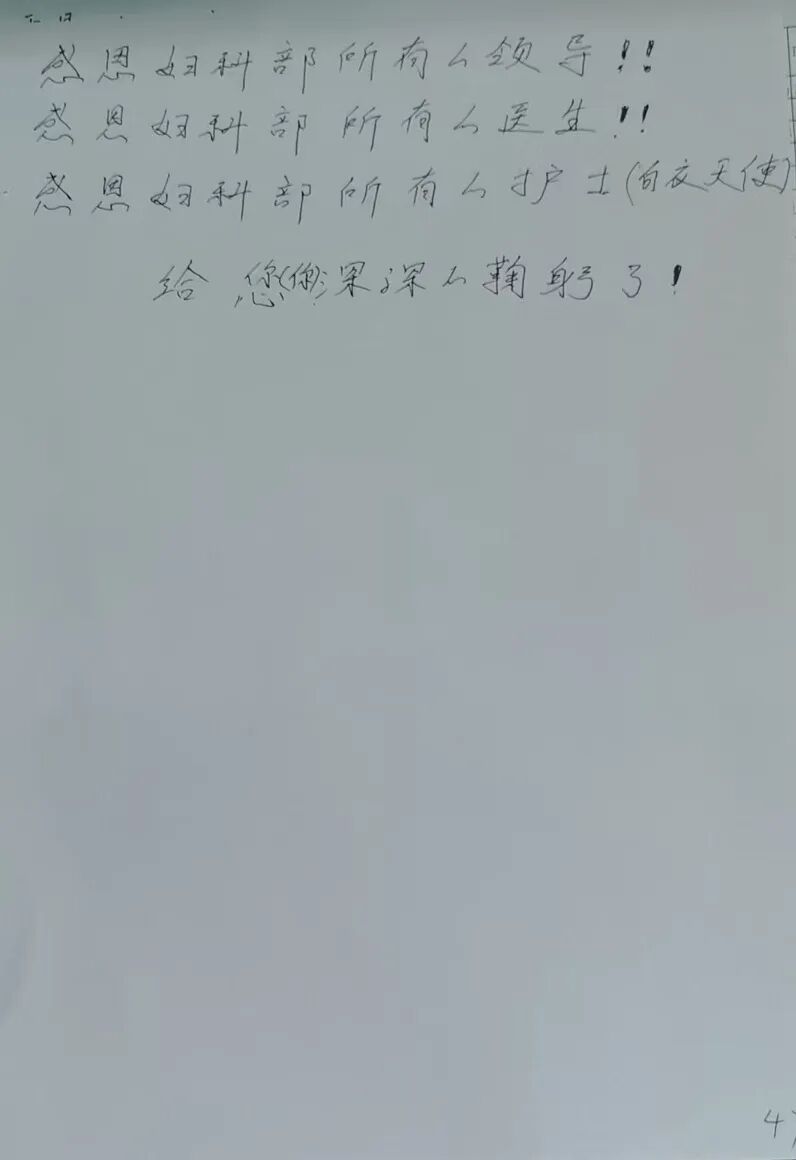 感恩妇科部所有人领导!!
感恩妇科部所有人医生!!
感恩妇科部所有人护士(白衣天使)
给您(你)深深人鞠躬了!
4